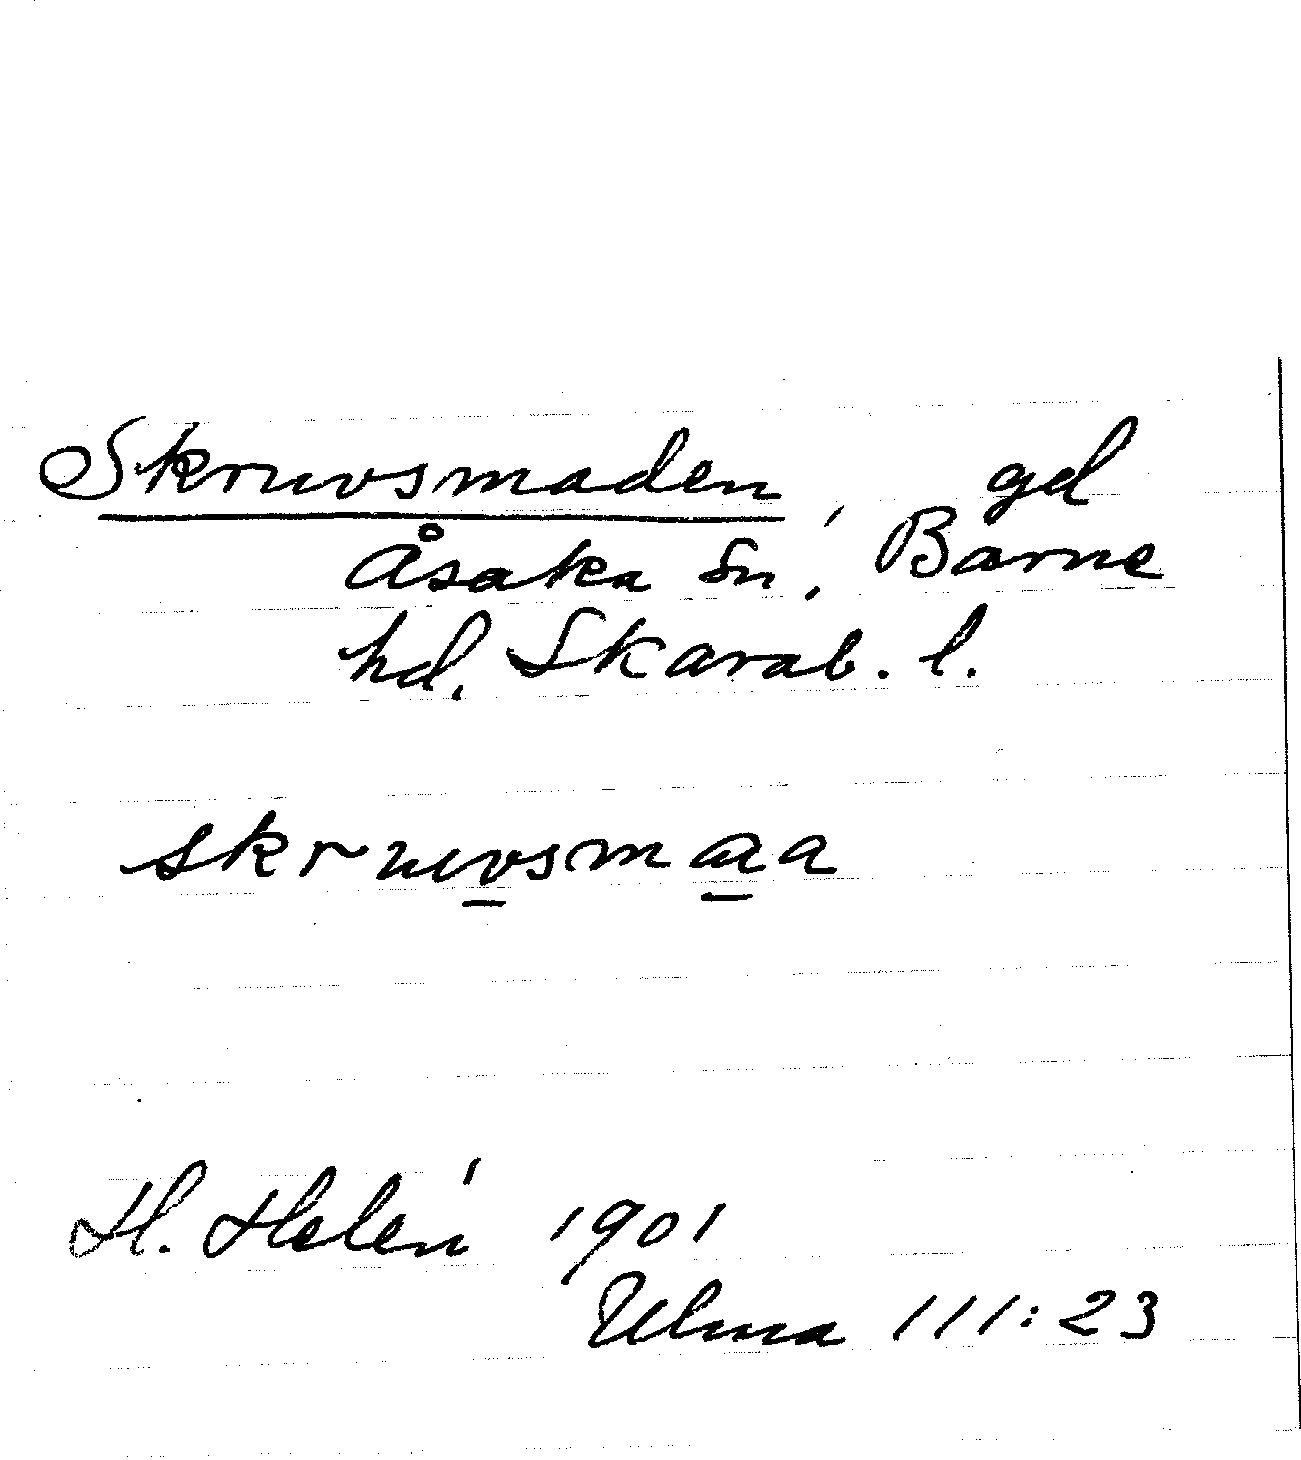 Skruvsmaden, gd
Åsaka sn, Barne
hd. Skarab. l.
skruvsmaa
H. Helén 1901
Ulma 111:23